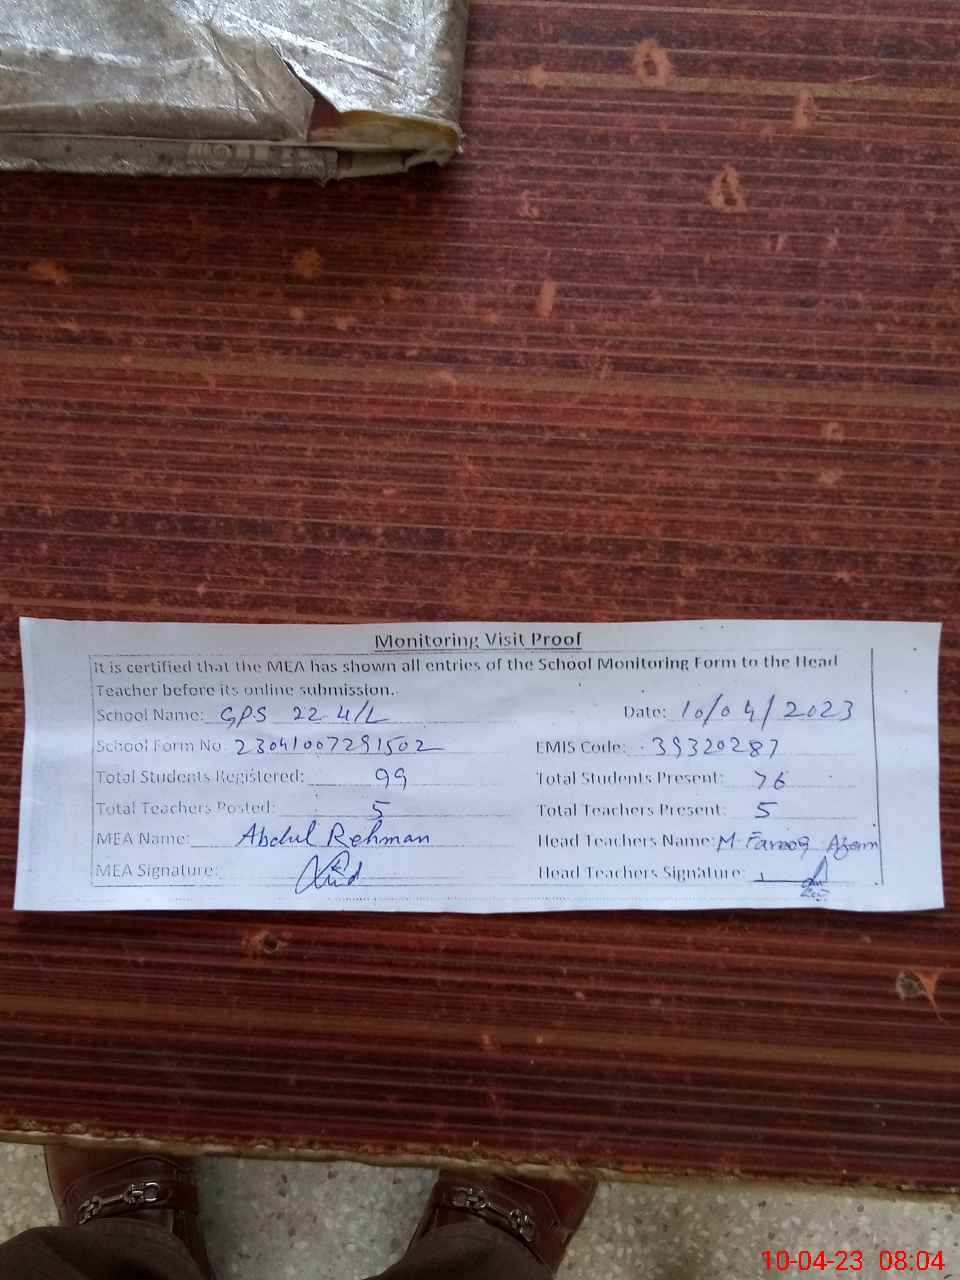 Monitoring Visit Proof
It is certified that the MEA has shown all entries of the School Monitoring Form to the Head
Teacher before its online submission.
School Name: GPS 22-4/L Date: 10/04/2023
School Form No. 23041007291502 EMIS Code: 39320287
Total Students Registered: 99 Total Students Present: 76
Total Teachers Posted: 5 Total Teachers Present: 5
MEA Name: Abdul Rehman Head Teachers Name: M. Farooq Azam
MEA Signature: Head Teachers Signature:
10-04-23 08:04